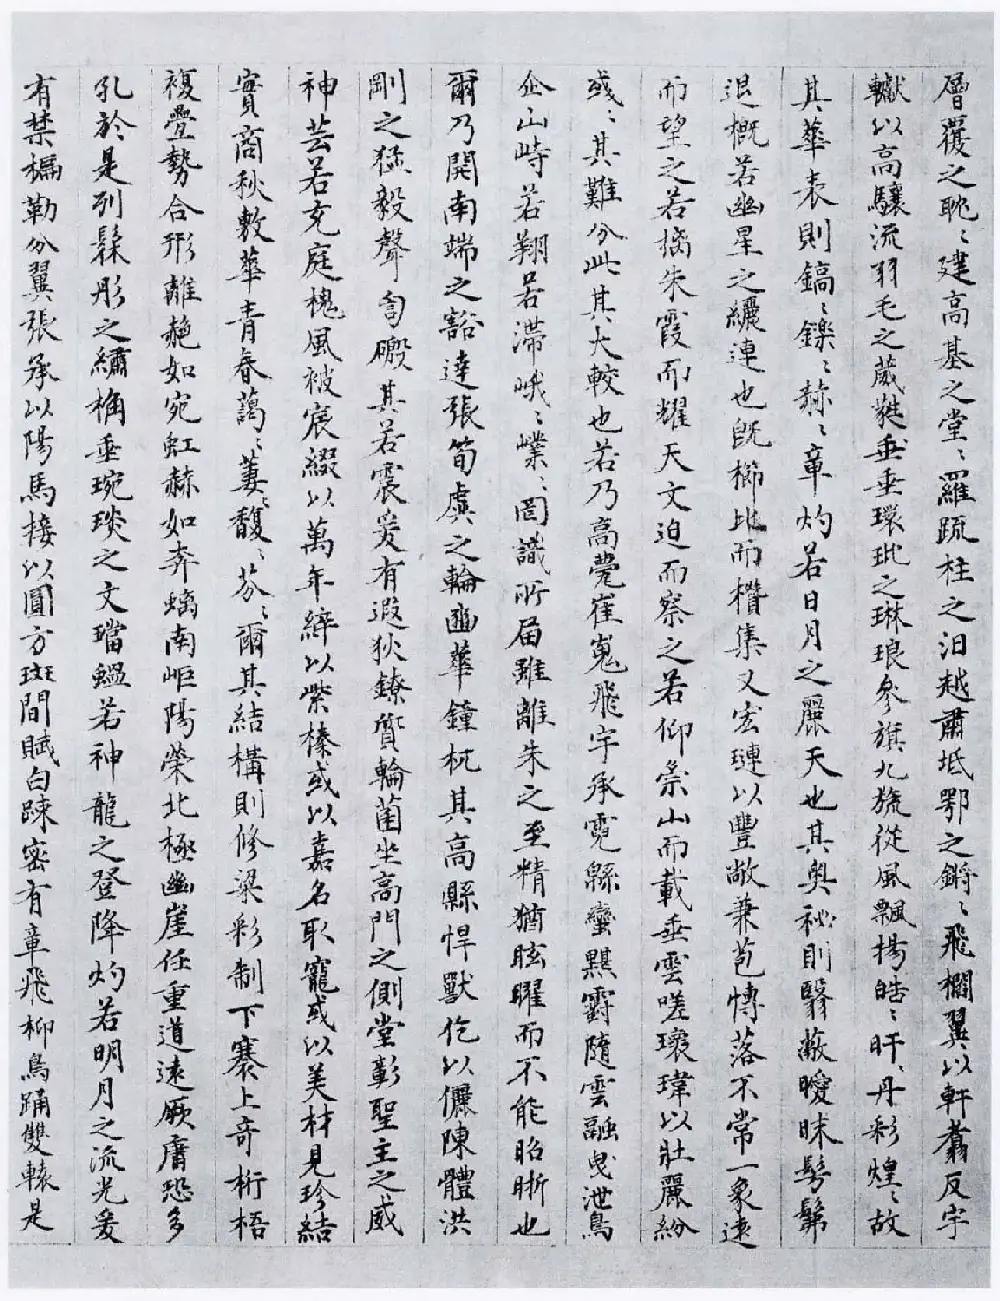 層覆之耽〻建高基之堂〻羅疏柱之汨越肅坻鄂之鏘〻飛櫩翼以軒翥反宇
轍以高驤流羽毛之葳蕤垂垂環玭之琳琅參旗九旒從風飄揚皓〻旰〻丹彩煌〻故
其華表則鎬〻鑠〻赫〻章灼若日月之麗天也其奧秘則翳蔽曖昧髣髴
退概若幽星之纚連也既櫛比而欑集又宏璉以豐敞兼苞慱落不常一象遠
而望之若摛朱霞而耀天文迫而察之若仰崇山而載垂雲嗟瓌瑋以壯麗紛
彧〻其難分此其大較也若乃高甍崔嵬飛宇承霓緜蠻黮䨴隨雲融曳泄鳥
企山峙若翔若滯峨〻嶪〻罔識所届雖離朱之至精猶眩曜而不能昭晰也
爾乃開南端之豁達張筍虡之輪豳華鐘杌其高縣悍獸仡以儷陳體洪
剛之猛毅聲訇磤其若震爰有遐狄鐐質輪菌坐高門之側堂彰聖主之威
神芸若充庭槐風被宸綴以萬年綷以紫榛或以嘉名取寵或以美材見珍結
實商秋敷華青春藹〻萋〻馥〻芬〻爾其結構則修梁彩制下褰上奇桁梧
複疊勢合形離赩如宛虹赫如奔螭南岠陽榮北極幽崖任重道遠厥庸恐多
孔於是列髹彤之繡桷垂琬琰之文璫蝹若神龍之登降灼若明月之流光爰
有禁楄勒分翼張承以陽馬接以圓方斑間賦白踈密有章飛柳鳥踊雙轅是